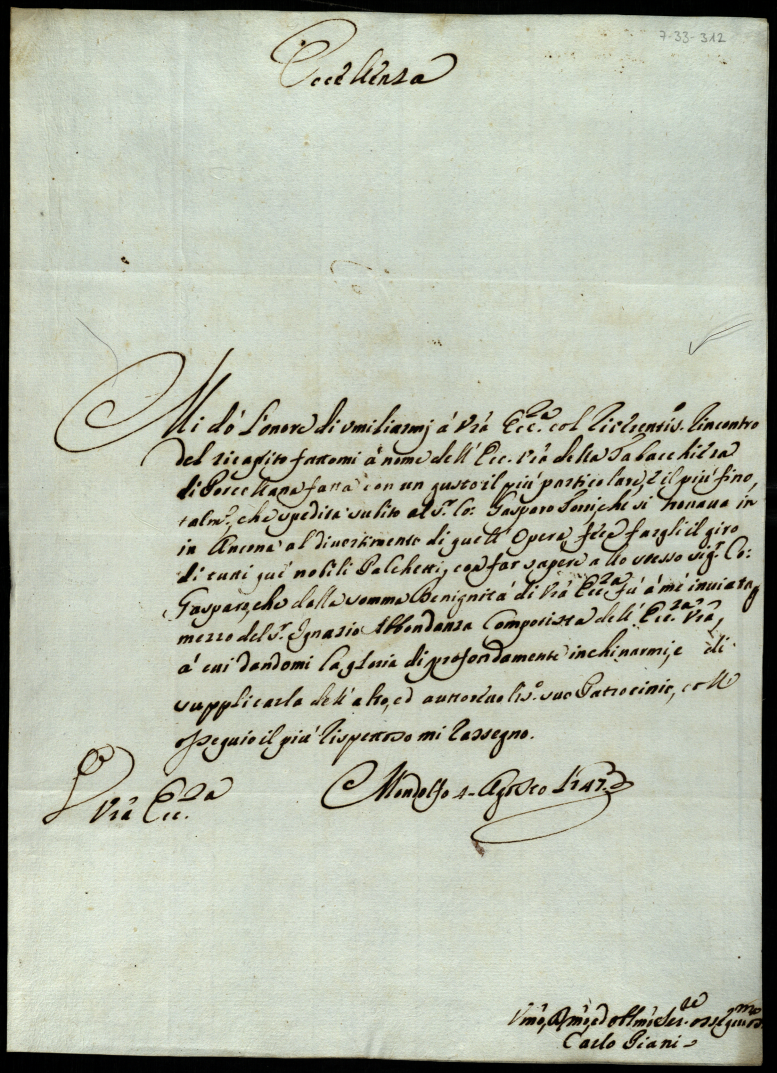 7-33-312
Eccellenza
Mi dò l'onore di umiliarmi à Vrã Ecc.za col riverentis.o rincontro
del ricapito fattomi à nome dell'Ecc. Vrã della Tabacchiera
di Porcellana fatta con un gusto il più particolare, e il più fino,
talm.e, che spedita subito al S.r Co: Gasparo che si trovava in
in Ancona al divertimento di quell'Opera, fece fargli il giro
di tutti que' nobili Palchetti, con far sapere a llo stesso sig.r Co:
Gasparo, che dalla somma Benignità di Vrã Ecc.za fù à me inviata p
mezzo del S.r Ignazio Abbondanza Computista dell'Ecc.za Vrã,
à cui dandomi la gloria di profondamente inchinarmi, e di
supplicarla dell'alto, ed auttorevolis.o suo Patrocinio, coll
ossequio il più rispettoso mi rassegno.
Di Vrã Ecc.za
Mondolfo 4 Agosto 1747
Vmõ, Dṽmõ, ed obblmõ Ser.re osseq.mo
Carlo Giani